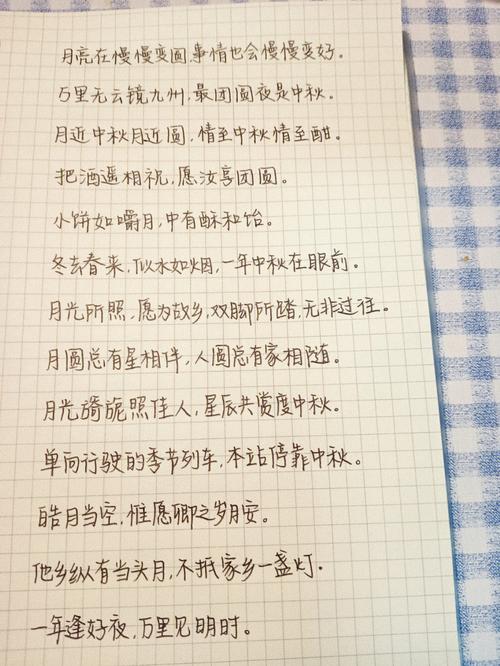 月亮在慢慢变圆,事情也会慢慢变好。
万里无云镜九州,最团圆夜是中秋。
月近中秋月近圆,情至中秋情至酣。
把酒遥相祝,愿汝享团圆。
小饼如嚼月,中有酥和饴。
冬去春来,似水如烟,一年中秋在眼前。
月光所照,愿为故乡,双脚所踏,无非过往。
月圆总有星相伴,人圆总有家相随。
月光旖旎照佳人,星辰共赏度中秋。
单向行驶的季节列车,本站停靠中秋。
皓月当空,惟愿卿之岁月安。
他乡纵有当头月,不抵家乡一盏灯.
一年逢好夜,万里见明时。